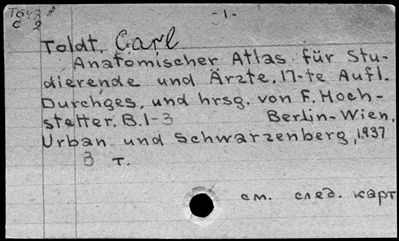 -1-
Toldt, Carl
Anatomischer Atlas für Stu-
dierende und Ärzte. 17-te Aufl.
Durchges. und hrsg. von F. Hoch-
stetter. B.1-3 Berlin-Wien,
Urban und Schwarzenberg, 1937
3 т.
см. след. карт